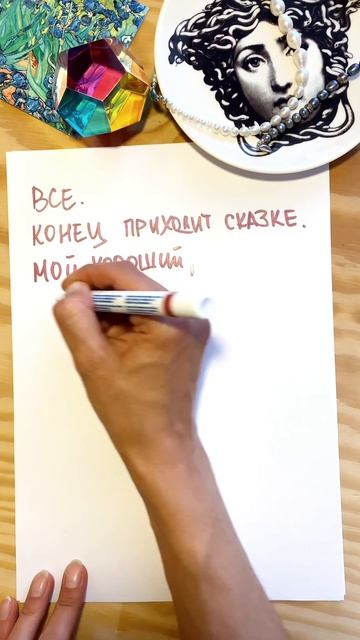 ВСЕ.
КОНЕЦ ПРИХОДИТ СКАЗКЕ.
МОЙ ХОРОШИЙ,